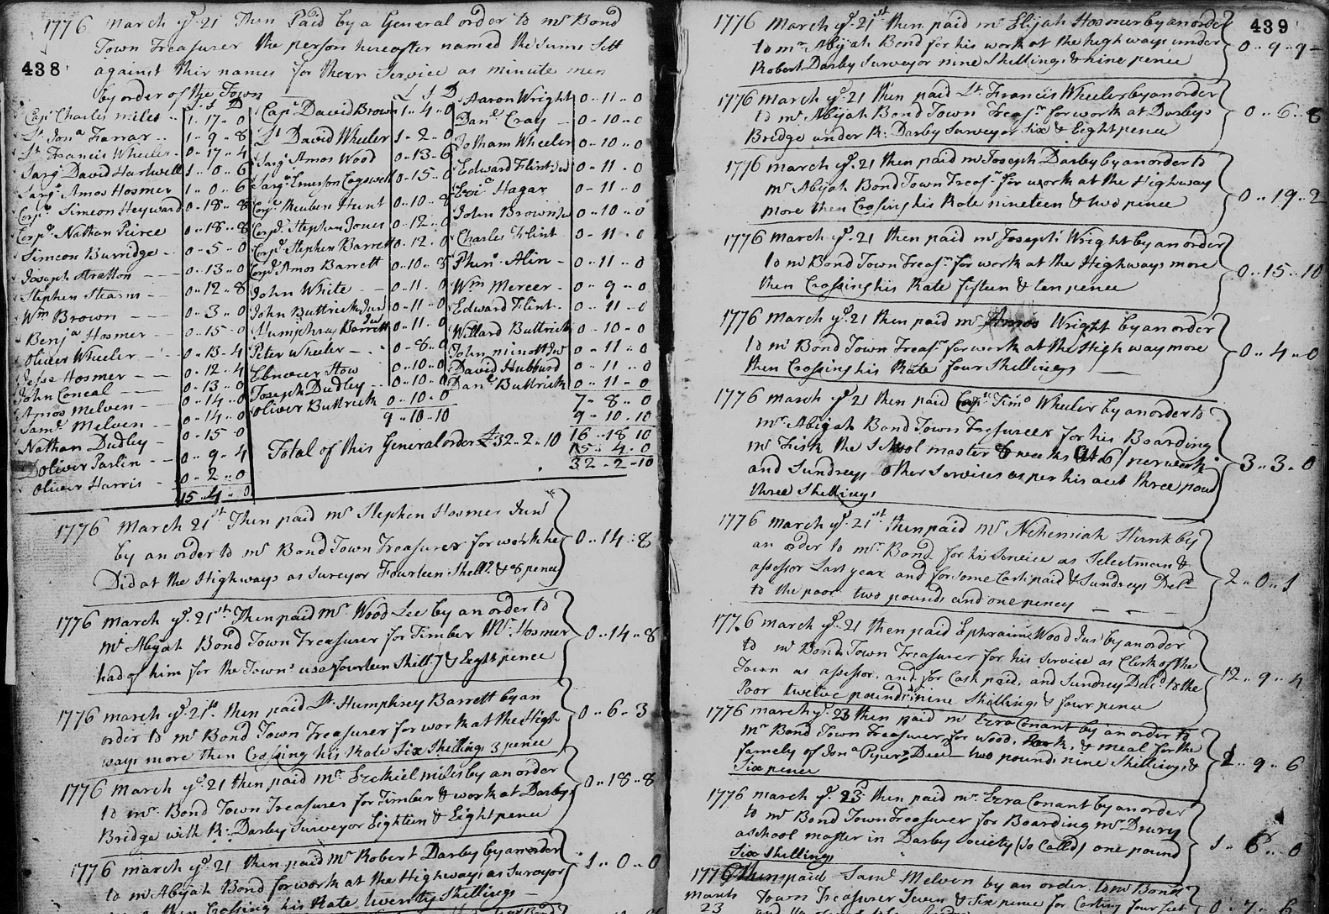 438
1776 March ye. 21 Then Paid by a General order to mr Bond
Town Treasurer the persons hereafter named the sums sett
against their names for there Service as minute men
by order of the Town
L S D
Capt Charles Miles .. 1..17..0
Lt Jona Farrar .. 1..9..8
Lt Francis Wheeler 0..17..4
Sarjt David Hartwell 1..0..6
Sarjt Amos Hosmer 1..0..6
Corpl Simeon Heyward 0..18..8
Corpl Nathan Peirce 0..18..8
Simeon Burridge 0..5..0
Joseph Stratton 0..13..0
Stephen Stearns 0..12..8
Wm Brown 0..3..0
Benja Hosmer 0..15..0
Oliver Wheeler 0..13..4
Jesse Hosmer 0..12..4
John Coneal 0..13..0
Amos Melven 0..14..0
Saml Melven 0..14..0
Nathan Dudley 0..15..0
Oliver Parlin 0..9..4
Oliver Harris 0..2..0
15..4..0
L S D
Capt David Brown 1..4..0
Lt David Wheeler 1..2..0
Sarjt Amos Wood 0..13..6
Sarjt Emerson Cogswell 0..15..0
Corpl Reuben Hunt 0..10..8
Corpl Stephen Jones 0..12..0
Corpl Stephen Barrett 0..12..0
Corpl Amos Barrett 0..10..8
John White 0..11..0
John Buttrick Jur 0..11..0
Humphry Barrett Jur 0..11..0
Peter Wheeler 0..8..0
Ebenezer Stow 0..10..0
Joseph Dudley 0..10..0
Oliver Buttrick 0..10..0
9..10..10
Aaron Wright 0..11..0
Danl Cray 0..10..0
Jotham Wheeler 0..10..0
Edward Flint Jur 0..11..0
Hagar 0..11..0
John Brown Jr 0..10..0
Charles Flint 0..11..0
0..11..0
Wm Mercer 0..9..0
Edward Flint 0..11..0
Willard Buttrick 0..10..0
John minott Jur 0..11..0
David Hubbard 0..11..0
Danl Buttrick 0..11..0
7..8..0
9..10..10
16..18..10
15..4..0
32..2..10
Total of this General order £32..2..10
1776 March 21st Then paid mr Stephen Hosmer Junr
by an order to mr Bond Town Treasurer for work he
Did at the Highways as Surveyor Fourteen Shills & 8 pence
0..14..8
1776 March ye. 21st Then paid Mr Wood Lee by an order to
mr Abijah Bond Town Treasurer for Timber Mr Hosmer
had of him for the Towns use fourteen Shillgs & Eight pence
0..14..8
1776 march ye. 21st then paid Lt Humphrey Barrett by an
order to mr Bond Town Treasurer for work at the High-
ways more then Crossing his Rate Six Shillings 3 pence
0..6..3
1776 March ye. 21 then paid mr Ezekiel miles by an order
to mr Bond Town Treasurer for Timber & work at Darbys
Bridge with R. Darby Surveyor Eighteen & Eight pence
0..18..8
1776 march ye. 21 then paid Mr Robert Darby by an order
to mr Abijah Bond for work at the Highways as Surveyor
more then Crossing his Rate twenty Shillings
1..0..0
439
1776 March ye. 21st then paid mr Elijah Hosmer by an order
to mr Abijah Bond for his work at the highways under
Robert Darby Surveyor nine Shillings & nine pence
0..9..9
1776 March ye. 21 then paid Lt Francis Wheeler by an order
to mr Abijah Bond Town Treasr for work at Darbys
Bridge under R. Darby Surveyor Six & Eight pence
0..6..8
1776 March ye. 21 then paid mr Joseph Darby by an order to
mr Abijah Bond Town Treasr for work at the Highway
more then Crossing his Rate nineteen & two pence
0..19..2
1776 March ye. 21 then paid mr Joseph Wright by an order
to mr Bond Town Treasr for work at the Highways more
then Crossing his Rate fifteen & ten pence
0..15..10
1776 March ye. 21 then paid mr Amos Wright by an order
to mr Bond Town Treasr for work at the High way more
then Crossing his Rate four Shillings
0..4..0
1776 March ye 21 then paid Capt Timo Wheeler by an order to
mr Abijah Bond Town Treasurer for his Boarding
mr Fisk the School master 8 weeks at 6/ per week
and Sundreys other Services as per his acct three pound
three Shillings
3..3..0
1776 march ye. 21st then paid Mr Nehemiah Hunt by
an order to mr Bond for his Service as Selectman &
assessor Last year and for some Cash paid & Sundreys Deld
to the poor two pounds and one pency
2..0..1
1776 march ye. 21 then paid Ephraim Wood Jur by an order
to mr Bond Town Treasurer for his Service as Clerk of the
Town as assessor, and for Cash paid, and Sundrey Deld to the
Poor twelve pounds nine Shillings & four pence
12..9..4
1776 march ye. 23 then paid mr Ezra Conant by an order to
mr Bond Town Treasurer for Wood, Pork, & meal for the
famely of Jona Piper Decd two pound nine Shillings &
Six pence
2..9..6
1776 march ye 23d then paid mr Ezra Conant by an order
to mr Bond Town Treasurer for Boarding mr Drury
a School master in Darby Society (So Called) one pound
Six Shillings
1..6..0
1776 Then paid Saml Melven by an order to mr Bond
March Town Treasurer Seven & Six pence for Carting four
23
0..7..6